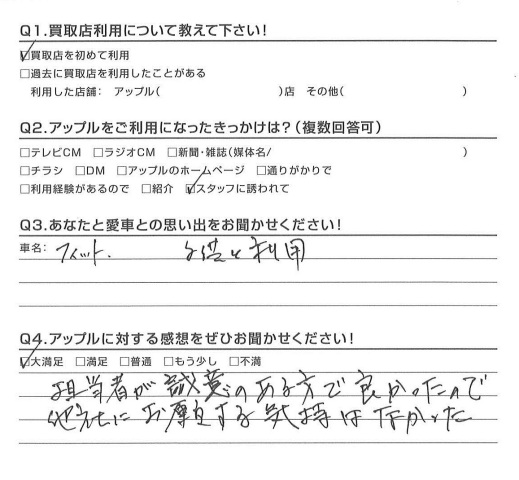 Q1.買取店利用について教えて下さい!
☑買取店を初めて利用
□過去に買取店を利用したことがある
利用した店舗: アップル( )店 その他( )
Q2.アップルをご利用になったきっかけは?(複数回答可)
□テレビCM □ラジオCM □新聞・雑誌(媒体名/ )
□チラシ □DM □アップルのホームページ □通りがかりで
□利用経験があるので □紹介 ☑スタッフに誘われて
Q3.あなたと愛車との思い出をお聞かせください!
車名: フィット. 子供と利用
Q4.アップルに対する感想をぜひお聞かせください!
☑大満足 □満足 □普通 □もう少し □不満
担当者が誠意のある方で良かったので
他社にお願する気持はなかった